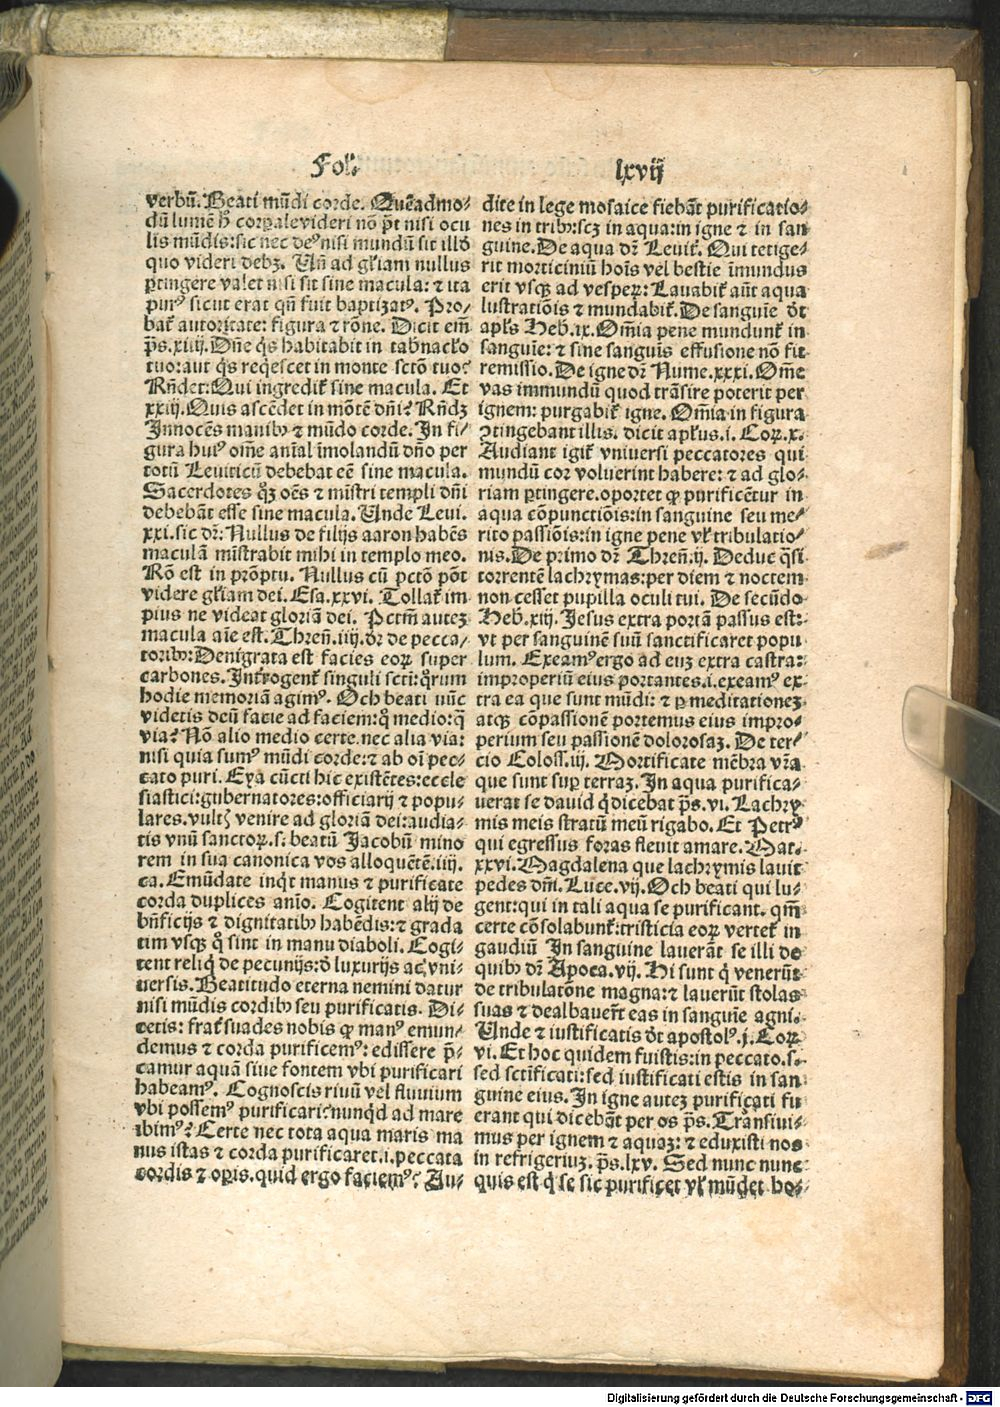 Fol. lxvij
verbū. Beati mūdi corde. Quēadmo-
dū lumē hͦ corꝑale videri nō pͭt nisi ocu
lis mūdis: sic nec deꝰ nisi mundū sit illō
quo videri debꝫ. Uñ ad gl̓iam nullus
ꝑtingere valet nisi sit sine macula: ⁊ ita
purꝰ sicut erat qñ fuit baptizatꝰ. Pro-
bat̉ autoritate: figura ⁊ rōne. Dicit em̄
ps̄. xiiij. Dn̄e q̇s habitabit in tab̓nac̓lo
tuo: aut q̇s reqescet in monte sctō tuo?
Rn̄det: Qui ingredit̉ sine macula. Et
xxiij. Quis ascēdet in mōtē dn̄i? Rn̄dꝫ
Innocēs manibꝰ ⁊ mūdo corde. In fi-
gura huiꝰ om̄e an̄al īmolandū dn̄o per
totū Leuiticū debebat eē̄ sine macula.
Sacerdotes qͦꝫ oēs ⁊ mīstri templi dn̄i
debebāt esse sine macula. Unde Leui.
xxi. sic dr̄: Nullus de filijs aaron habēs
maculā mīstrabit mihi in templo meo.
Rō est in prōptu. Nullus cū pctō pōt
videre gl̓iam dei. Esa. xxvi. Tollat̉ im
pius ne videat gloriā dei. Pctm̄ auteꝫ
macula aīe est. Thren̄. iiij. dr̄ de pecca-
toribꝰ: Denigrata est facies eoꝝ super
carbones. Int̓rogent̉ singuli scti: qͦrum
hodie memoriā agimꝰ. Och beati nūc
videtis deū facie ad faciem: qͦ medio: q̄
via? Nō alio medio certe. nec alia via:
nisi quia sumꝰ mūdi corde: ⁊ ab oī pec-
cato puri. Eya cūcti hic existētes: eccle
siastici: gubernatores: officiarij ⁊ popu-
lares. vultꝭ venire ad gloriā dei: audia-
tis vnū sanctoꝝ. s. beatū Jacobū mino
rem in sua canonica vos alloquētē. iiij.
ca. Emūdate inq̇t manus ⁊ purificate
corda duplices anīo. Cogitent alij de
bn̄ficijs ⁊ dignitatibꝰ habēdis: ⁊ grada
tim vsqꝫ qͦ sint in manu diaboli. Cogi-
tent reliq̇ de pecunijs: d̓ luxurijs ac vni-
uersis. Beatitudo eterna nemini datur
nisi mūdis cordibꝰ seu purificatis. Di-
cetis: frat̉ suades nobis ꝙ manꝰ emun-
demus ⁊ corda purificemꝰ: edissere p̄-
camur aquā siue fontem vbi purificari
habeamꝰ. Cognoscis riuū vel fluuium
vbi possemꝰ purificari? nunq̇d ad mare
ibimꝰ? Certe nec tota aqua maris ma
nus istas ⁊ corda purificaret. i. peccata
cordis ⁊ oꝑis. quid ergo faciemꝰ? Au-
dite in lege mosaice fiebāt purificatio-
nes in tribꝰ: scꝫ in aqua: in igne ⁊ in san
guine. De aqua dr̄ Leuit̉. Qui tetige-
rit morticiniū hoīs vel bestie īmundus
erit vsqꝫ ad vesperꝫ: Lauabit̉ aūt aqua
lustratiōis ⁊ mundabit̉. De sanguīe dt̄
apl̓s Heb. ix. Om̄ia pene mundunt̉ in
sanguīe: ⁊ sine sanguīs effusione nō fit
remissio. De igne dr̄ Nume. xxxi. Om̄e
vas immundū quod trāsire poterit per
ignem: purgabit̉ igne. Om̄ia in figura
ꝯtingebant illis. dicit apl̓us. i. Coꝝ. x.
Audiant igit̉ vniuersi peccatores qui
mundū cor voluerint habere: ⁊ ad glo-
riam ꝑtingere. oportet ꝙ purificētur in
aqua cōpunctiōis: in sanguine seu me-
rito passiōis: in igne pene vl̓ tribulatio-
nis. De primo dr̄ Thren̄. ij. Deduc q̇si
torrentē lachrymas: per diem ⁊ noctem
non cesset pupilla oculi tui. De secūdo
Heb. xiij. Jesus extra portā passus est:
vt per sanguinē suū sanctificaret popu
lum. Exeamꝰ ergo ad euꝫ extra castra:
improperiū eius portantes. i. exeamꝰ ex-
tra ea que sunt mūdi: ⁊ ꝑ meditationeꝫ
atqꝫ cōpassionē portemus eius impro-
perium seu passionē dolorosaꝫ. De ter-
cio Coloss. iij. Mortificate mēbra vr̄a
que sunt suꝑ terraꝫ. In aqua purifica-
uerat se dauid q̇ dicebat ps̄. vi. Lachry
mis meis stratū meū rigabo. Et Petrꝰ
qui egressus foras fleuit amare. Mat.
xxvi. Magdalena que lachrymis lauit
pedes dn̄i. Luce. vij. Och beati qui lu-
gent: qui in tali aqua se purificant. qm̄
certe cōsolabunt̉: tristicia eoꝝ vertet̉ in
gaudiū In sanguine lauerāt se illi de
quibꝰ dr̄ Apoca. vij. Hi sunt q̇ venerūt
de tribulatōne magna: ⁊ lauerūt stolas
suas ⁊ dealbauer̄t eas in sanguīe agni.
Unde ⁊ iustificatis dt̄ apostolꝰ. j. Coꝝ
vi. Et hoc quidem fuistis: in peccato. s.
sed sctīficati: sed iustificati estis in san
guine eius. In igne auteꝫ purificati fu
erant qui dicebāt per os ps̄. Trāsiui-
mus per ignem ⁊ aquaꝫ: ⁊ eduxisti nos
in refrigeriuꝫ. ps̄. lxv. Sed nunc nunc
quis est q̇ se sic purificet vl̓ mūdet ho-
Digitalisierung gefördert durch die Deutsche Forschungsgemeinschaft - DFG